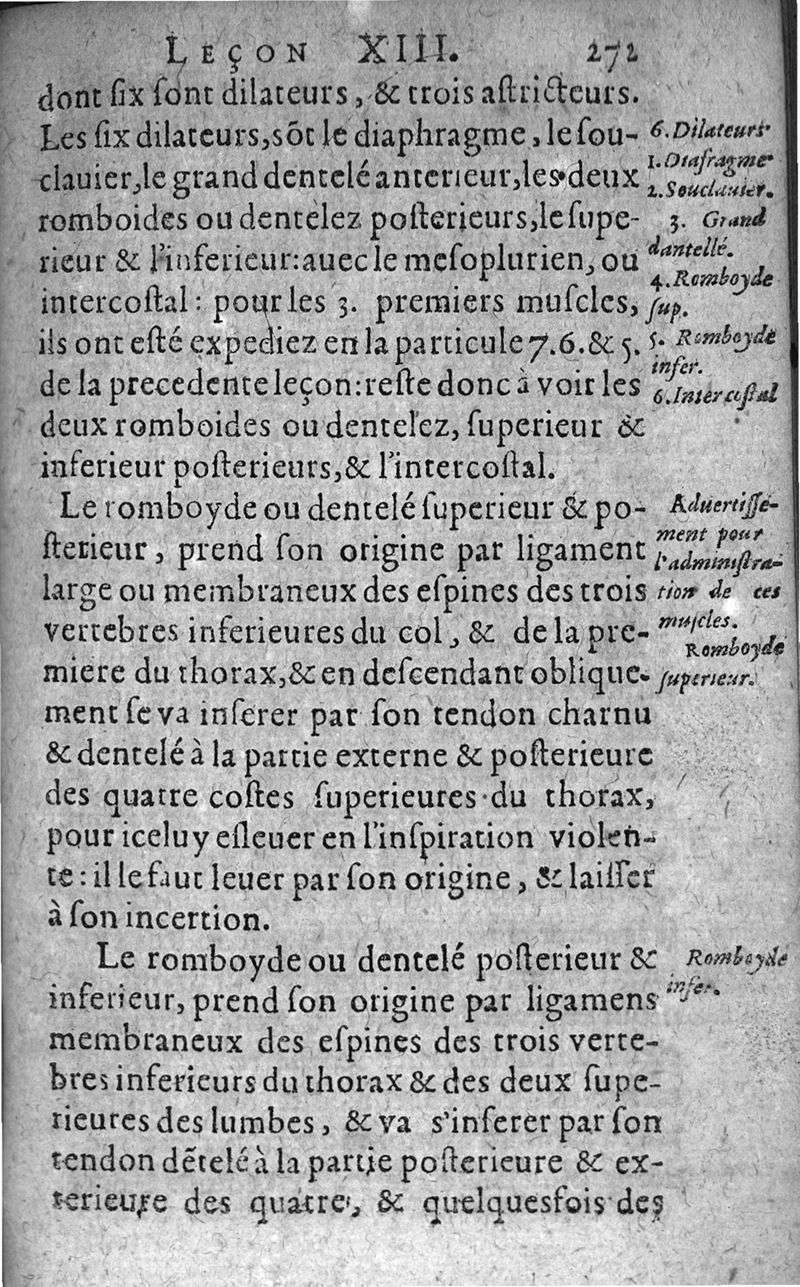 LEÇON XIII. 272
dont ſix ſont dilateurs, & trois aſtricteurs.
Les ſix dilateurs, sõt le diaphragme, le ſou-
clauier, le grand dentelé anterieur, les deux
romboides ou dentelez poſterieurs, le ſupe-
rieur & l'inferieur: auec le meſoplurien, ou
intercoſtal: pour les 3. premiers muſcles,
ils ont eſté expediez en la particule 7. 6. & 5.
de la precedente leçon: reſte donc à voir les
deux romboides ou dentelez, ſuperieur &
inferieur poſterieurs, & l'intercoſtal.
Le romboyde ou dentelé ſuperieur & po-
ſterieur, prend ſon origine par ligament
large ou membraneux des eſpines des trois
vertebres inferieures du col, & de la pre-
miere du thorax, & en deſcendant oblique-
ment ſe va inſerer par ſon tendon charnu
& dentelé à la partie externe & poſterieure
des quatre coſtes ſuperieures du thorax,
pour iceluy eſleuer en l'inſpiration violen-
te: il le faut leuer par ſon origine, & laiſſer
à ſon incertion.
Le romboyde ou dentelé poſterieur &
inferieur, prend ſon origine par ligamens
membraneux des eſpines des trois verte-
bres inferieurs du thorax & des deux ſupe-
rieures des lumbes, & va s'inſerer par ſon
tendon dẽtelé à la partie poſterieure & ex-
terieure des quatre, & quelquesfois des
6. Dilateurs.
1. Diafragme
2. Souclauier.
3. Grand
dantellé.
4. Romboyde
ſup.
5. Romboyde
infer.
6. Intercoſtal
Aduertiſſe-
ment pour
l'adminiſtra-
tion de ces
muſcles.
Romboyde
ſuperieur.
Romboyde
infer.